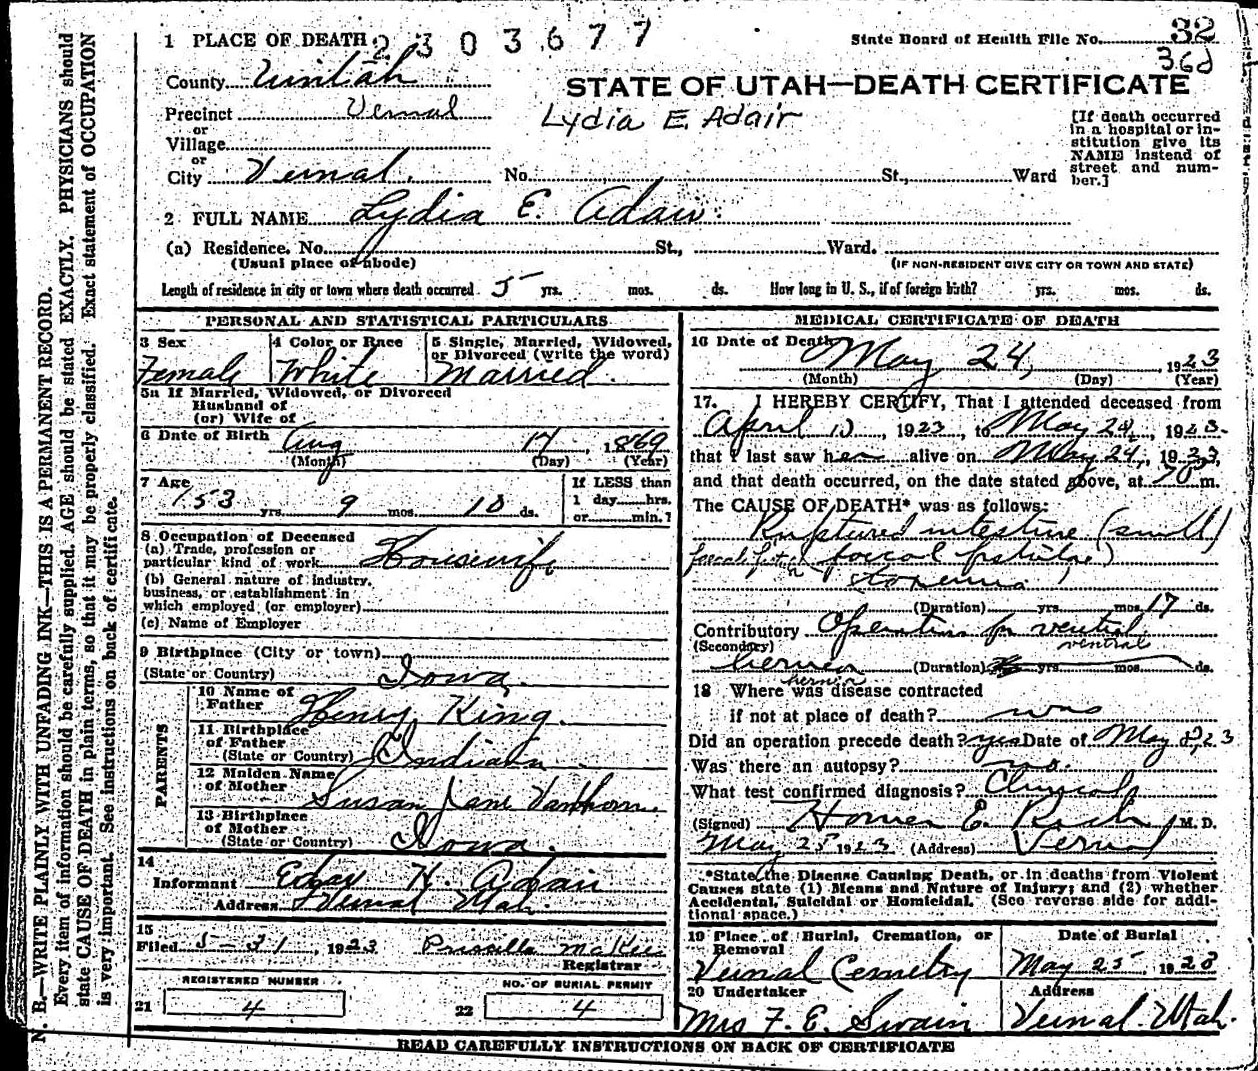 32
1 PLACE OF DEATH 2 3 0 3 6 7 7 State Board of Health File No.
36d
County Uintah
STATE OF UTAH—DEATH CERTIFICATE
Precinct Vernal
Lydia E. Adair
[If death occurred in a hospital or institution give its NAME instead of street and number.]
or
Village
or
City Vernal. No. St., Ward
2 FULL NAME Lydia E. Adair.
(a) Residence. No. St., Ward.
(Usual place of abode) (IF NON-RESIDENT GIVE CITY OR TOWN AND STATE)
Length of residence in city or town where death occurred 5 yrs. mos. ds. How long in U. S., if of foreign birth? yrs. mos. ds.
PERSONAL AND STATISTICAL PARTICULARS
3 Sex
Female
4 Color or Race
White
5 Single, Married, Widowed,
or Divorced (write the word)
Married.
5a If Married, Widowed, or Divorced
Husband of
(or) Wife of
6 Date of Birth Aug 14 1869
(Month) (Day) (Year)
7 Age
53 yrs. 9 mos. 10 ds.
If LESS than
1 day hrs.
or min.?
8 Occupation of Deceased
(a) Trade, profession or
particular kind of work Housewife
(b) General nature of industry,
business, or establishment in
which employed (or employer)
(c) Name of Employer
9 Birthplace (City or town)
(State or Country) Iowa.
PARENTS
10 Name of
Father Henry King.
11 Birthplace
of Father
(State or Country) Indiana.
12 Maiden Name
of Mother Susan Jane Vanhorn.
13 Birthplace
of Mother
(State or Country) Iowa.
14
Informant Edgar H. Adair
Address Vernal Utah.
15
Filed 5-31, 1923 Priscilla McKee
Registrar
REGISTERED NUMBER
21 4
NO. OF BURIAL PERMIT
22 4
MEDICAL CERTIFICATE OF DEATH
16 Date of Death May 24, 1923
(Month) (Day) (Year)
17. I HEREBY CERTIFY, That I attended deceased from
April 10, 1923, to May 24, 1923.
that I last saw her alive on May 24, 1923,
and that death occurred, on the date stated above, at m.
The CAUSE OF DEATH* was as follows:
Ruptured intestine (small)
foecal fistula (foecal fistula)
(Duration) yrs. mos. 17 ds.
Contributory Operation for ventral
(Secondary) ventral
hernia (Duration) yrs. mos. ds.
hernia
18 Where was disease contracted
if not at place of death? was
Did an operation precede death? yes Date of May 8, 23
Was there an autopsy? no.
What test confirmed diagnosis? Clinical
(Signed) Homer E. Rich M. D.
May 25 1923 (Address) Vernal
*State the Disease Causing Death, or in deaths from Violent
Causes state (1) Means and Nature of Injury; and (2) whether
Accidental, Suicidal or Homicidal. (See reverse side for addi-
tional space.)
19 Place of Burial, Cremation, or
Removal
Vernal Cemetry
Date of Burial
May 25, 1923
20 Undertaker
Mrs F. E. Swain
Address
Vernal. Utah.
READ CAREFULLY INSTRUCTIONS ON BACK OF CERTIFICATE
N. B.—WRITE PLAINLY WITH UNFADING INK—THIS IS A PERMANENT RECORD.
Every item of information should be carefully supplied. AGE should be stated EXACTLY. PHYSICIANS should
state CAUSE OF DEATH in plain terms, so that it may be properly classified. Exact statement of OCCUPATION
is very important. See instructions on back of certificate.